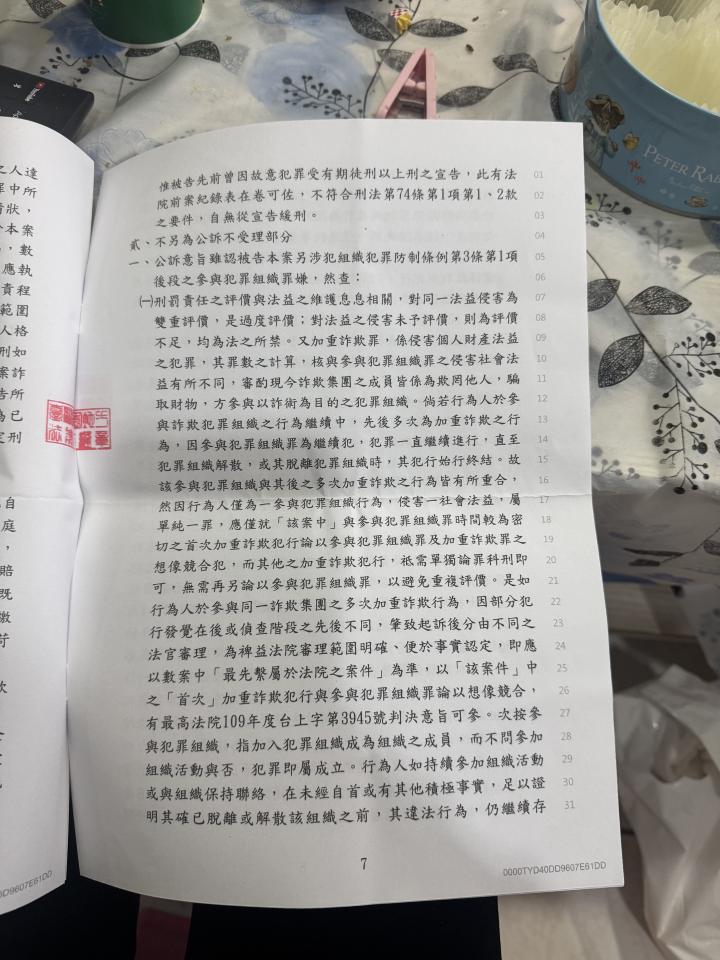 之人違
罪中所
情狀，
本案
，數
應執
責程
範圍
人格
刑如
案詐
告所
為已
定刑
自
庭
，
賠
既
徵
苛
欤
惟被告先前曾因故意犯罪受有期徒刑以上刑之宣告，此有法 01
院前案紀錄表在卷可佐，不符合刑法第74條第1項第1、2款 02
之要件，自無從宣告緩刑。 03
貳、不另為公訴不受理部分 04
一、公訴意旨雖認被告本案另涉犯組織犯罪防制條例第3條第1項 05
後段之參與犯罪組織罪嫌，然查： 06
㈠刑罰責任之評價與法益之維護息息相關，對同一法益侵害為 07
雙重評價，是過度評價；對法益之侵害未予評價，則為評價 08
不足，均為法之所禁。又加重詐欺罪，係侵害個人財產法益 09
之犯罪，其罪數之計算，核與參與犯罪組織罪之侵害社會法 10
益有所不同，審酌現今詐欺集團之成員皆係為欺罔他人，騙 11
取財物，方參與以詐術為目的之犯罪組織。倘若行為人於參 12
與詐欺犯罪組織之行為繼續中，先後多次為加重詐欺之行 13
為，因參與犯罪組織罪為繼續犯，犯罪一直繼續進行，直至 14
犯罪組織解散，或其脫離犯罪組織時，其犯行始行終結。故 15
該參與犯罪組織與其後之多次加重詐欺之行為皆有所重合， 16
然因行為人僅為一參與犯罪組織行為，侵害一社會法益，屬 17
單純一罪，應僅就「該案中」與參與犯罪組織罪時間較為密 18
切之首次加重詐欺犯行論以參與犯罪組織罪及加重詐欺罪之 19
想像競合犯，而其他之加重詐欺犯行，祗需單獨論罪科刑即 20
可，無需再另論以參與犯罪組織罪，以避免重複評價。是如 21
行為人於參與同一詐欺集團之多次加重詐欺行為，因部分犯 22
行發覺在後或偵查階段之先後不同，肇致起訴後分由不同之 23
法官審理，為裨益法院審理範圍明確、便於事實認定，即應 24
以數案中「最先繫屬於法院之案件」為準，以「該案件」中 25
之「首次」加重詐欺犯行與參與犯罪組織罪論以想像競合， 26
有最高法院109年度台上字第3945號判決意旨可參。次按參 27
與犯罪組織，指加入犯罪組織成為組織之成員，而不問參加 28
組織活動與否，犯罪即屬成立。行為人如持續參加組織活動 29
或與組織保持聯絡，在未經自首或有其他積極事實，足以證 30
明其確已脫離或解散該組織之前，其違法行為，仍繼續存 31
7
0000TYD40DD9607E61DD
D9607E61DD
PETER RAB